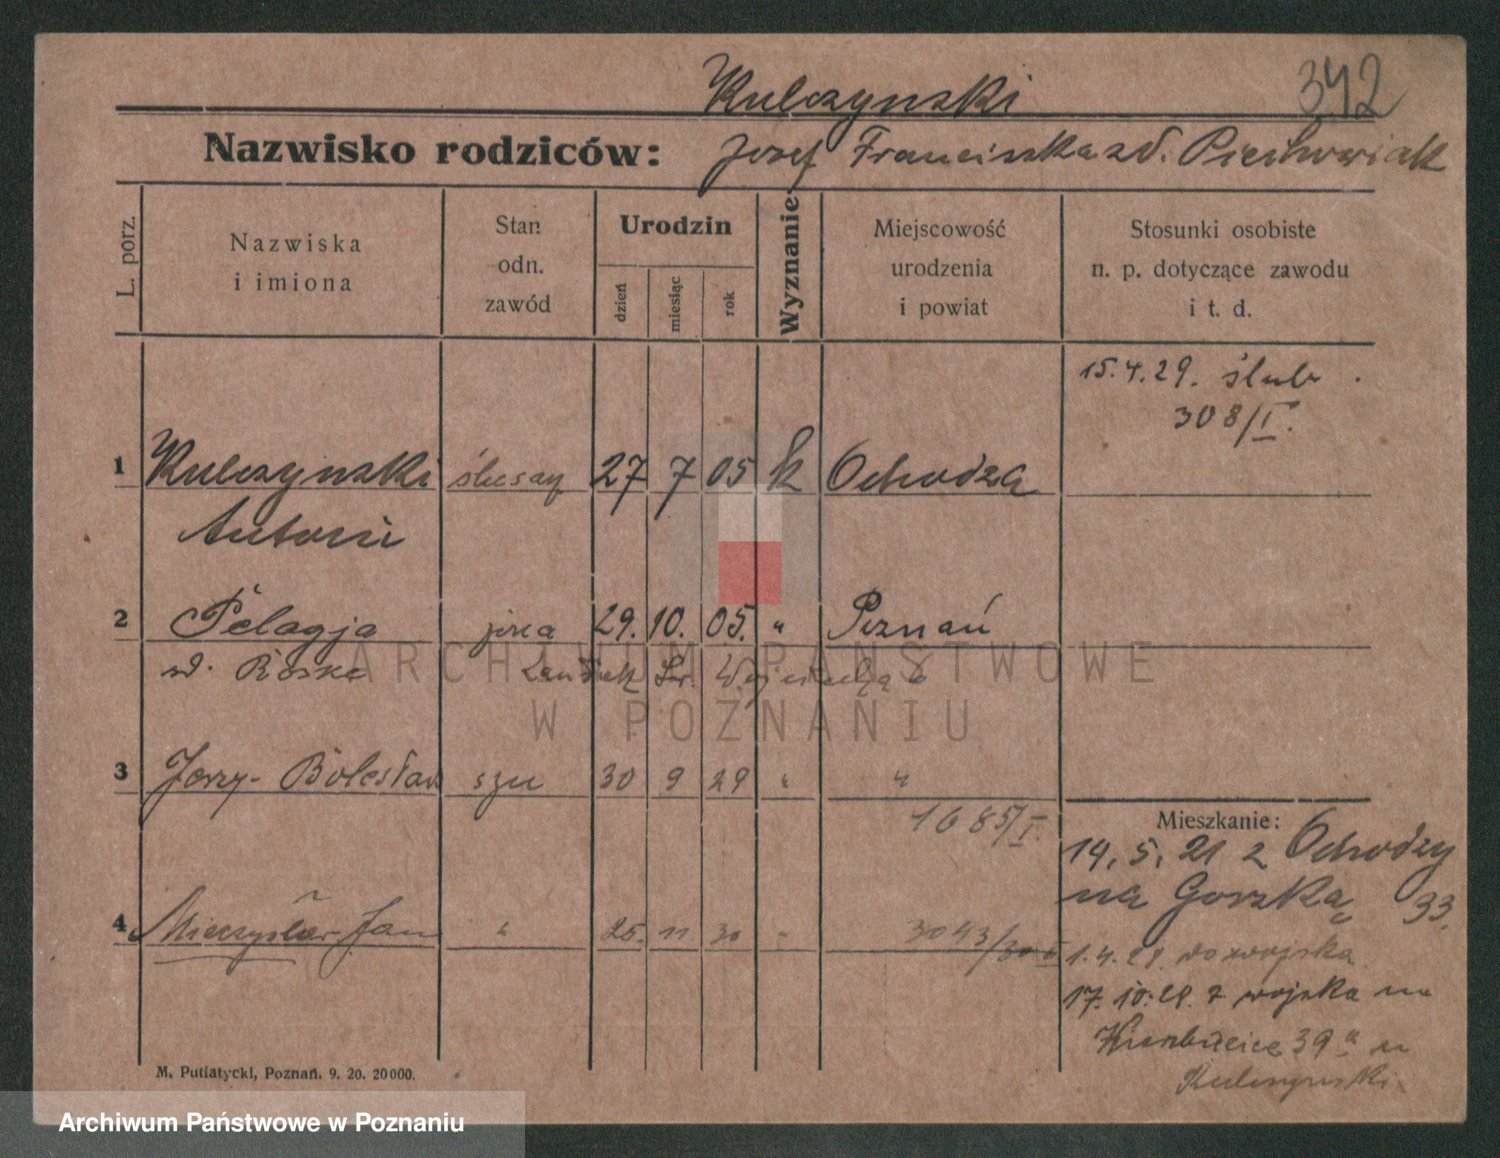 Kulczynski
342
Nazwisko rodziców: Jozef Franciszka zd. Piechowiak
L. porz.
Nazwiska i imiona
Stan odn. zawód
Urodzin
dzień
miesiąc
rok
Wyznanie
Miejscowość urodzenia i powiat
Stosunki osobiste n. p. dotyczące zawodu i t. d.
15.4.29. ślub
308/I.
1 Kulczynski ślusarz 27 7 05 k Ochodza
Antoni
2 Pelagja żona 29. 10. 05. " Poznań
zd. Roske
ARCHIWUM PAŃSTWOWE
W POZNANIU
3 Jerzy-Bolesław syn 30 9 29 " "
1685/I.
Mieszkanie:
14.5.21 z Ochodzy
na Gorską 33.
4 Mieczysław Jan " 25. 11 30 " 3043/30
1.4.28. do wojska
17.10.28. z wojska na
39a u
Kulczynski
M. Putiatycki, Poznań. 9. 20. 20000.
Archiwum Państwowe w Poznaniu